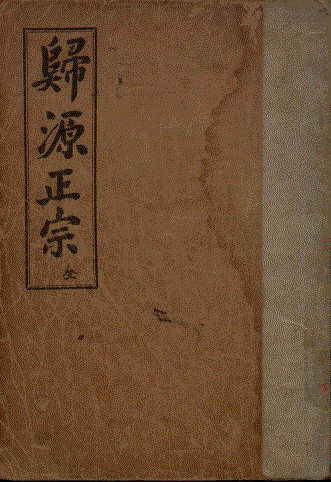 歸源正宗 全